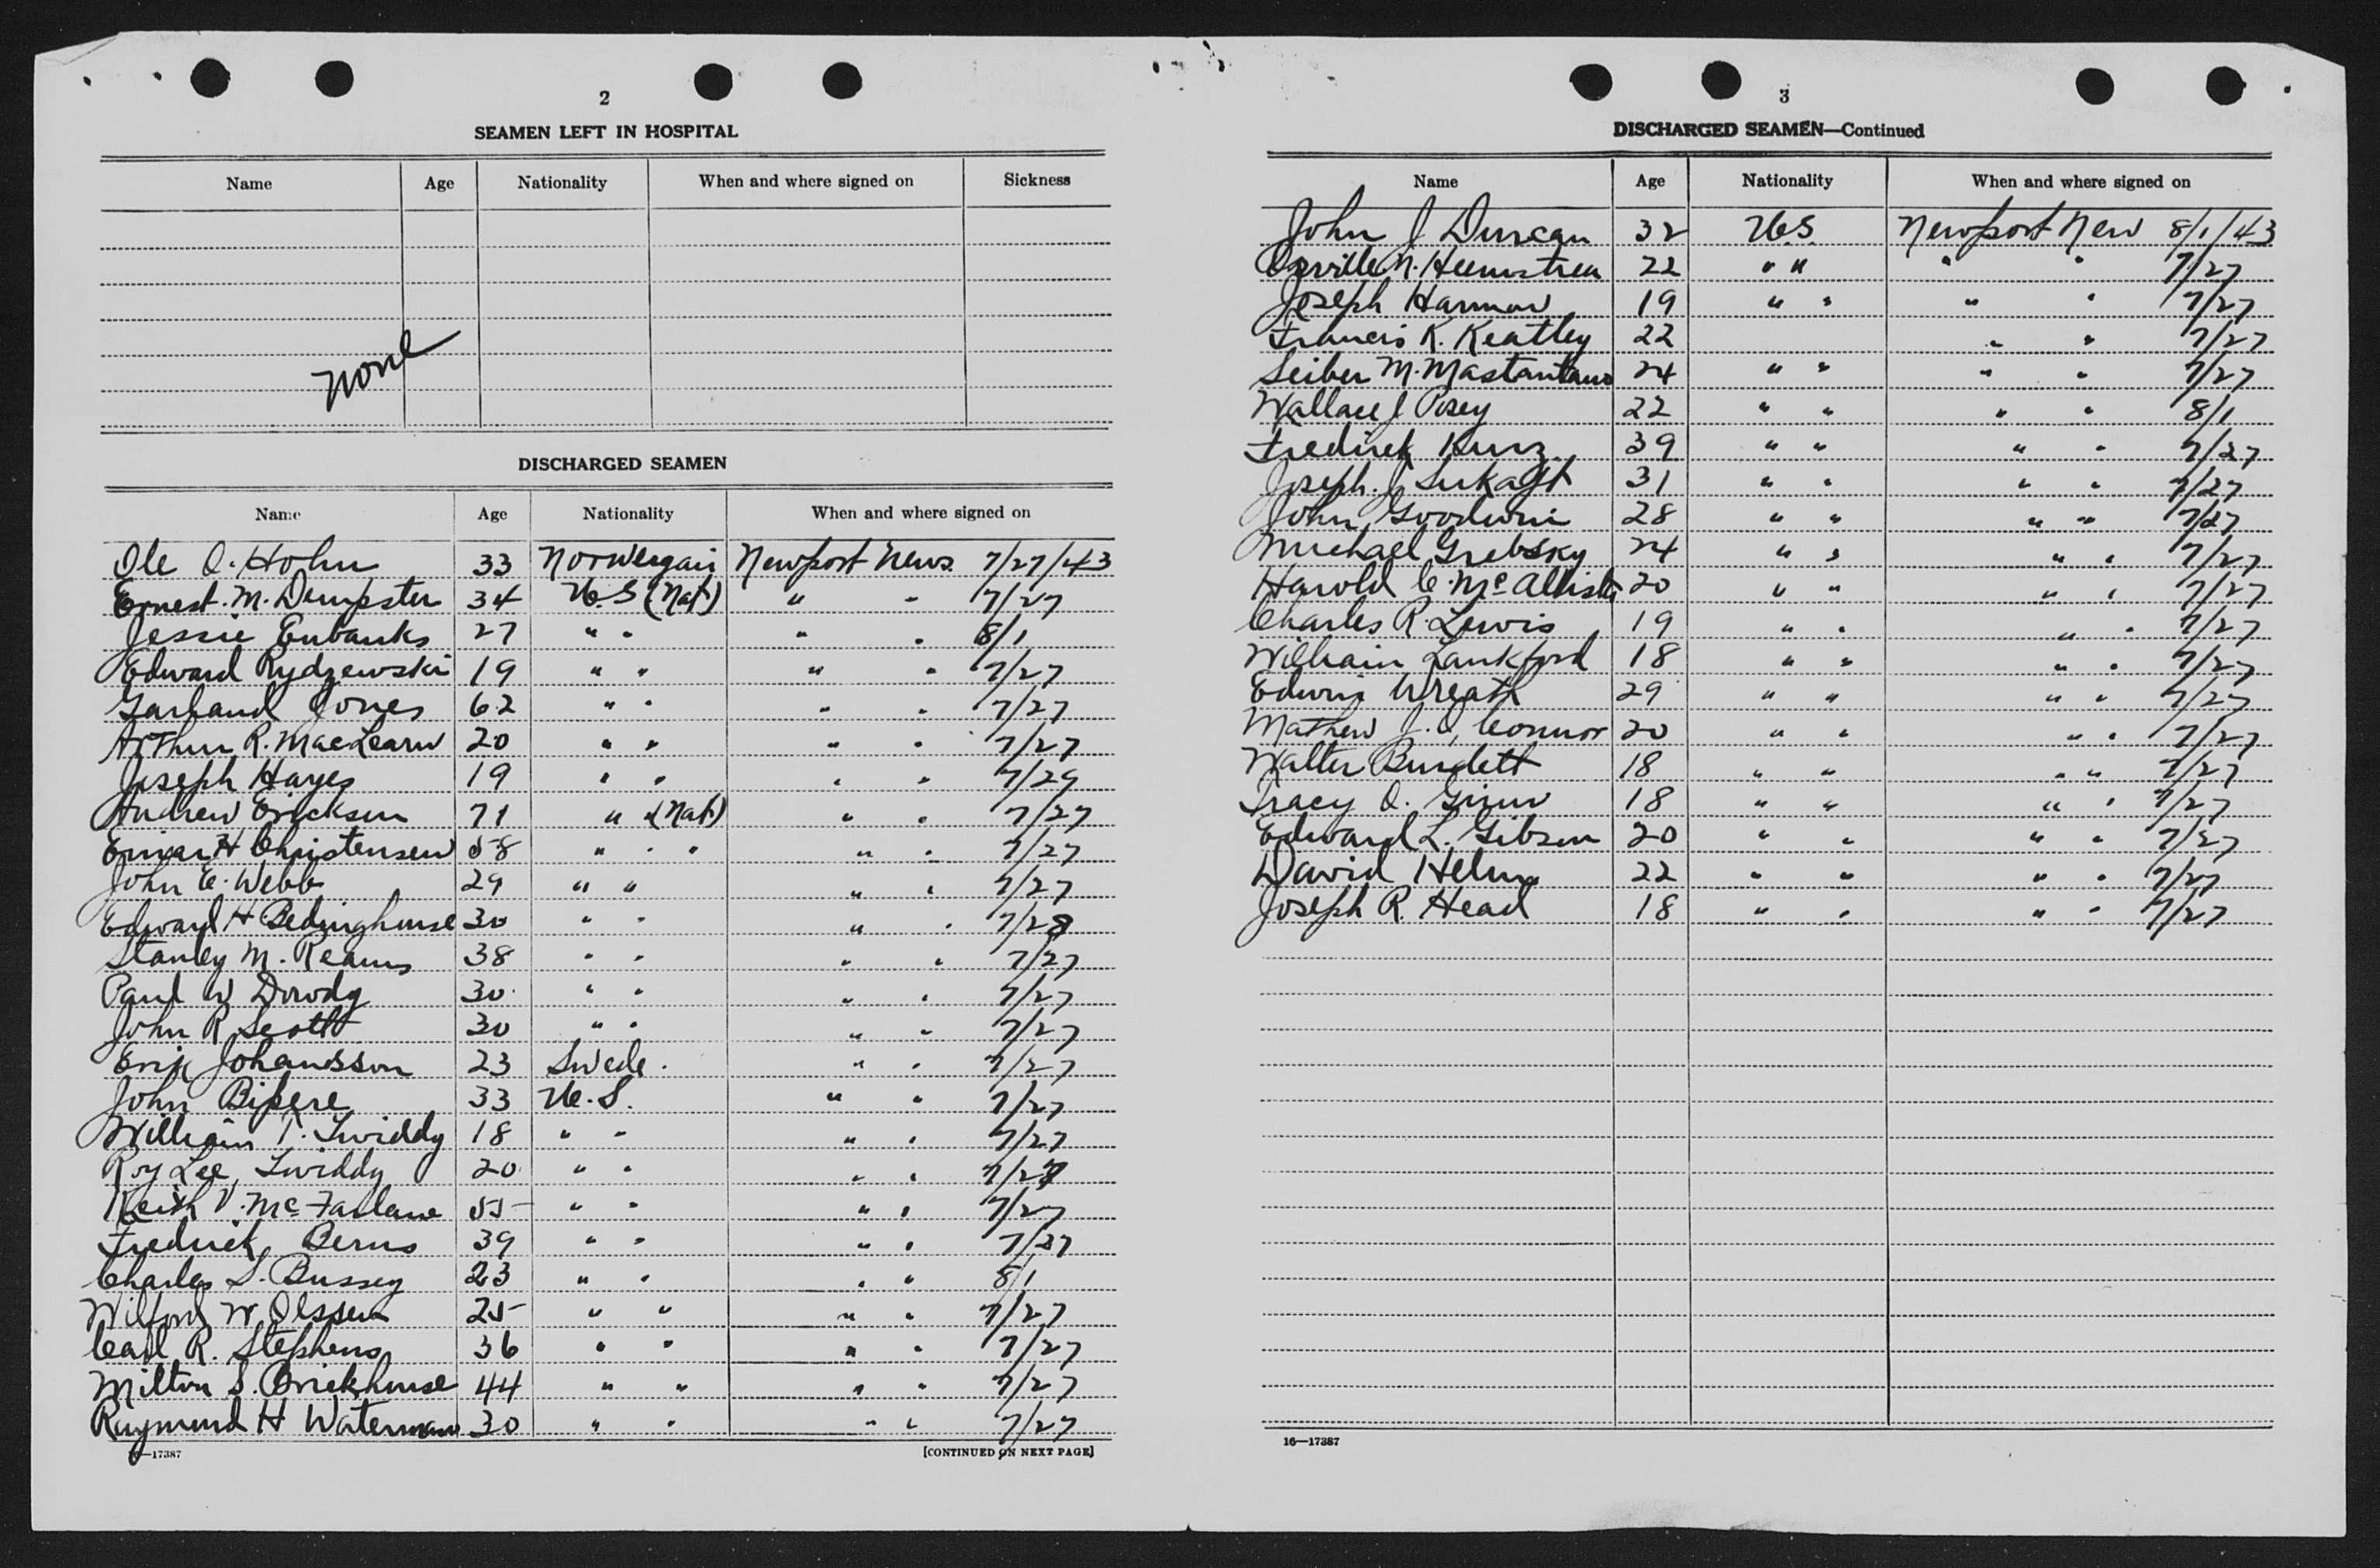 2
SEAMEN LEFT IN HOSPITAL
Name Age Nationality When and where signed on Sickness
None
DISCHARGED SEAMEN
Name Age Nationality When and where signed on
Ole O. Hohn 33 Norwegain Newport News 7/27/43
Ernest M. Dempster 34 U.S (Nat) " " 7/27
Jessie Eubanks 27 " " " " 8/1
Edward Rydzewski 19 " " " " 7/27
Garland Jones 62 " " " " 7/27
Arthur R. MacLearn 20 " " " " 7/27
Joseph Hayes 19 " " " " 7/29
Andrew Ericksen 71 " (Nat) " " 7/27
Einar H Christensen 58 " " " " " 7/27
John E. Webb 29 " " " " 7/27
Edward H Bedinghouse 30 " " " " 7/28
Stanley M. Reams 38 " " " " 7/27
Paul W Dowdy 30 " " " " 7/27
John R Scott 30 " " " " 7/27
Erik Johansson 23 Swede. " " 7/27
John Bipere 33 U.S. " " 7/27
William T. Twiddy 18 " " " " 7/27
Roy Lee Twiddy 20 " " " " 7/27
Keith V. McFarlane 55 " " " " 7/27
Fredrick Berns 39 " " " " 7/27
Charles S. Bussey 23 " " " " 8/1
Wilford W. Olssen 25 " " " " 7/27
Carl R. Stephens 36 " " " " 7/27
Milton S. Brickhouse 44 " " " " 7/27
Raymond H Waterman 30 " " " " 7/27
16—17387 [CONTINUED ON NEXT PAGE]
3
DISCHARGED SEAMEN—Continued
Name Age Nationality When and where signed on
John J Duncan 32 U.S. Newport New 8/1/43
Orville N. Heemstra 22 " " " " 7/27
Joseph Harmon 19 " " " " 7/27
Francis K. Keatley 22 " " 7/27
Seiber M. Mastantauo 24 " " " " 7/27
Wallace J Posey 22 " " " " 8/1
Fredrick Kurz 39 " " " " 7/27
Joseph J 31 " " " " 7/27
John Goodwin 28 " " " " 7/27
Michael Grebsky 24 " " " " 7/27
Harold C. McAllister 20 " " " " 7/27
Charles R. Lewis 19 " " " " 7/27
William Lankford 18 " " " " 7/27
Edwin Wreath 29 " " " " 7/27
Mathew J. O, Connor 20 " " " " 7/27
Walter Burdett 18 " " " " 7/27
Tracy O. 18 " " " " 7/27
Edward L. Gibson 20 " " " " 7/27
David Helm 22 " " " " 7/27
Joseph R. Head 18 " " " " 7/27
16—17387